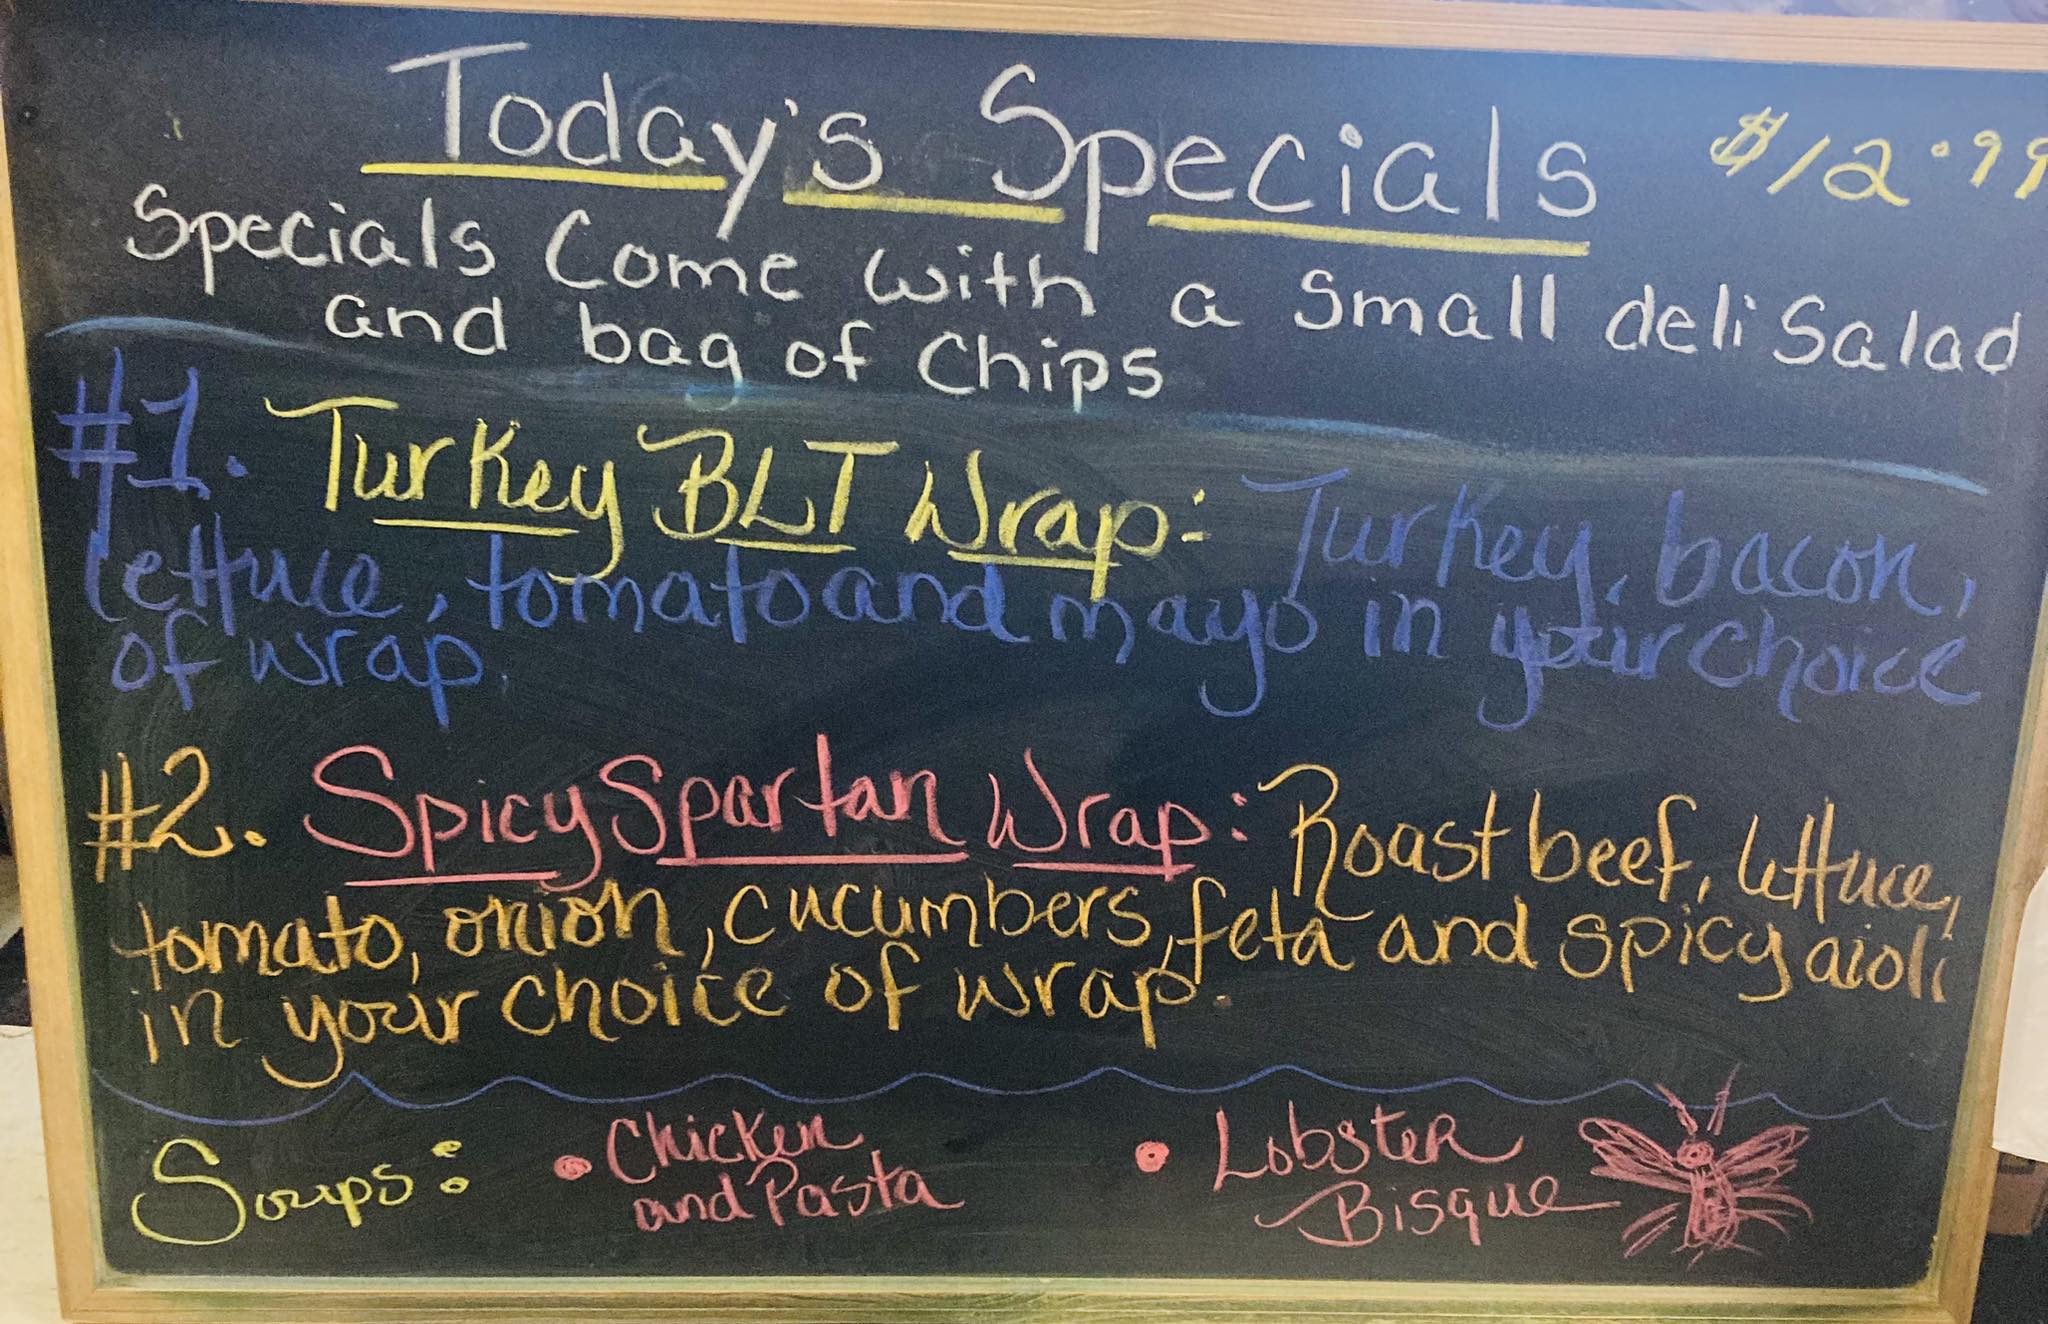 Today's Specials $12.99
Specials Come with a Small deli Salad
and bag of Chips
#1. Turkey BLT Wrap: Turkey, bacon,
lettuce, tomato and mayo in your choice
of wrap.
#2. Spicy Spartan Wrap: Roast beef, lettuce,
tomato, onion, cucumbers, feta and spicy aioli
in your choice of wrap.
Soups: • Chicken • Lobster
and Pasta Bisque